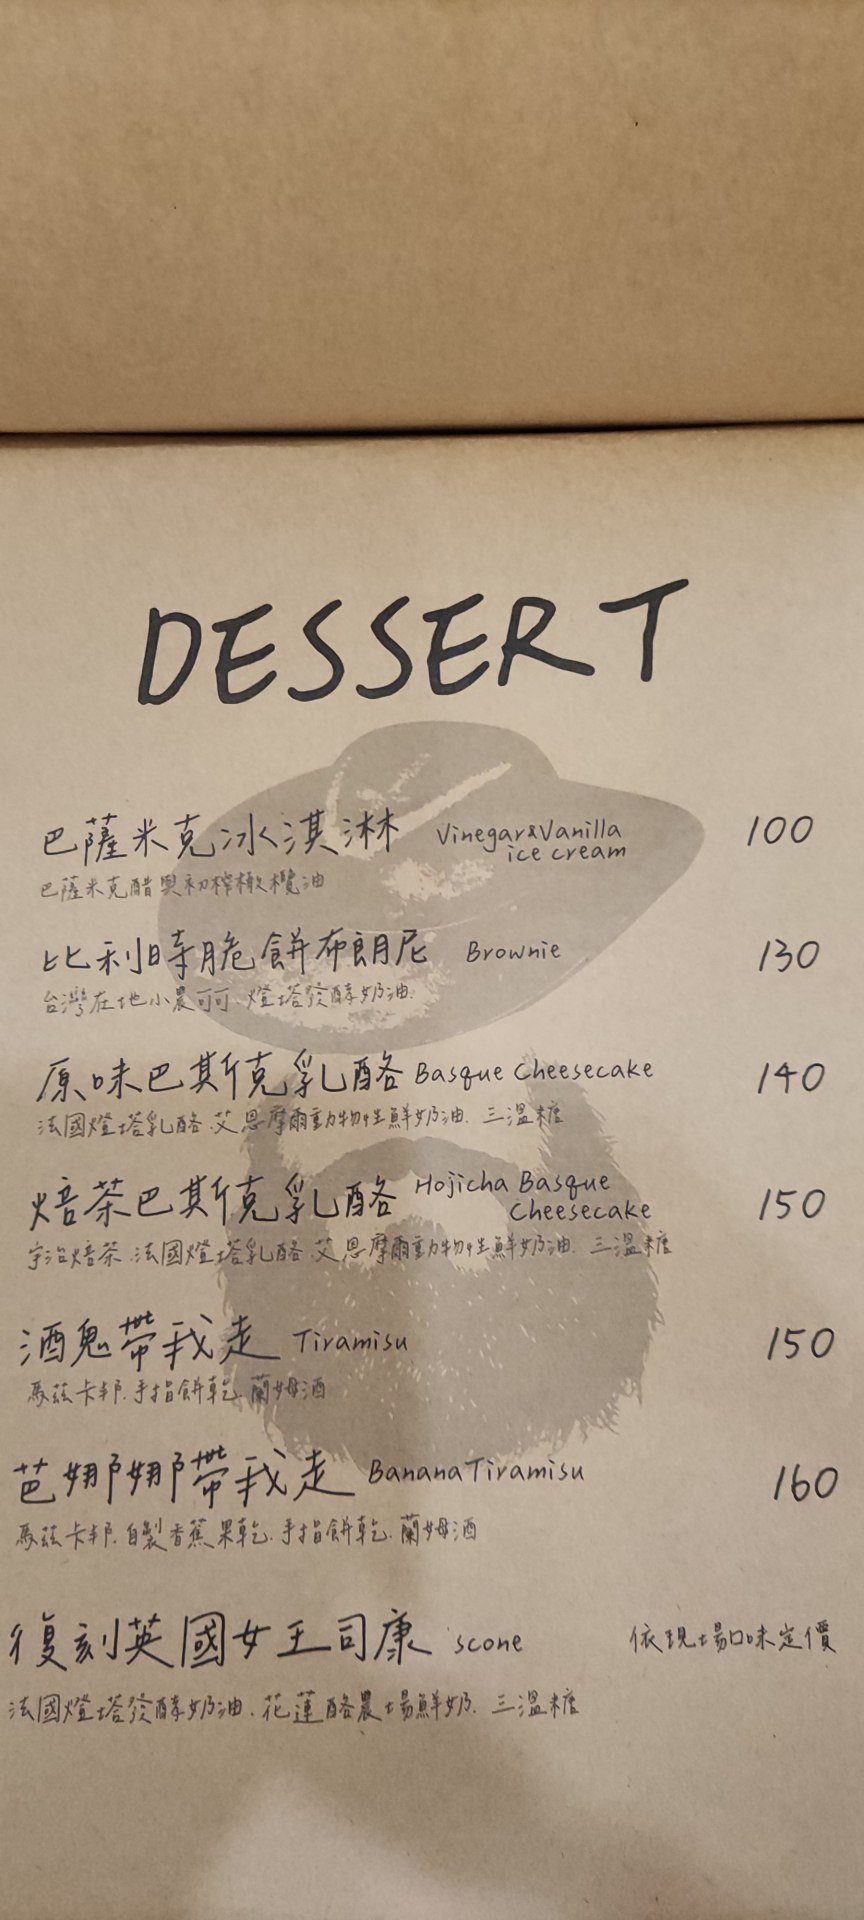 DESSERT
巴薩米克冰淇淋 Vinegar&Vanilla ice cream 100
巴薩米克醋與初榨橄欖油
比利時脆餅布朗尼 Brownie 130
台灣在地小農可可、燈塔發酵奶油.
原味巴斯克乳酪 Basque Cheesecake 140
法國燈塔乳酪.艾恩摩爾動物性鮮奶油.三溫糖
焙茶巴斯克乳酪 Hojicha Basque Cheesecake 150
宇治焙茶.法國燈塔乳酪.艾恩摩爾動物性鮮奶油.三溫糖
酒鬼帶我走 Tiramisu 150
馬茲卡邦.手指餅乾.蘭姆酒
芭娜娜帶我走 Banana Tiramisu 160
馬茲卡邦.自製香蕉果乾.手指餅乾.蘭姆酒
復刻英國女王司康 scone 依現場口味定價
法國燈塔發酵奶油.花蓮酪農場鮮奶.三溫糖